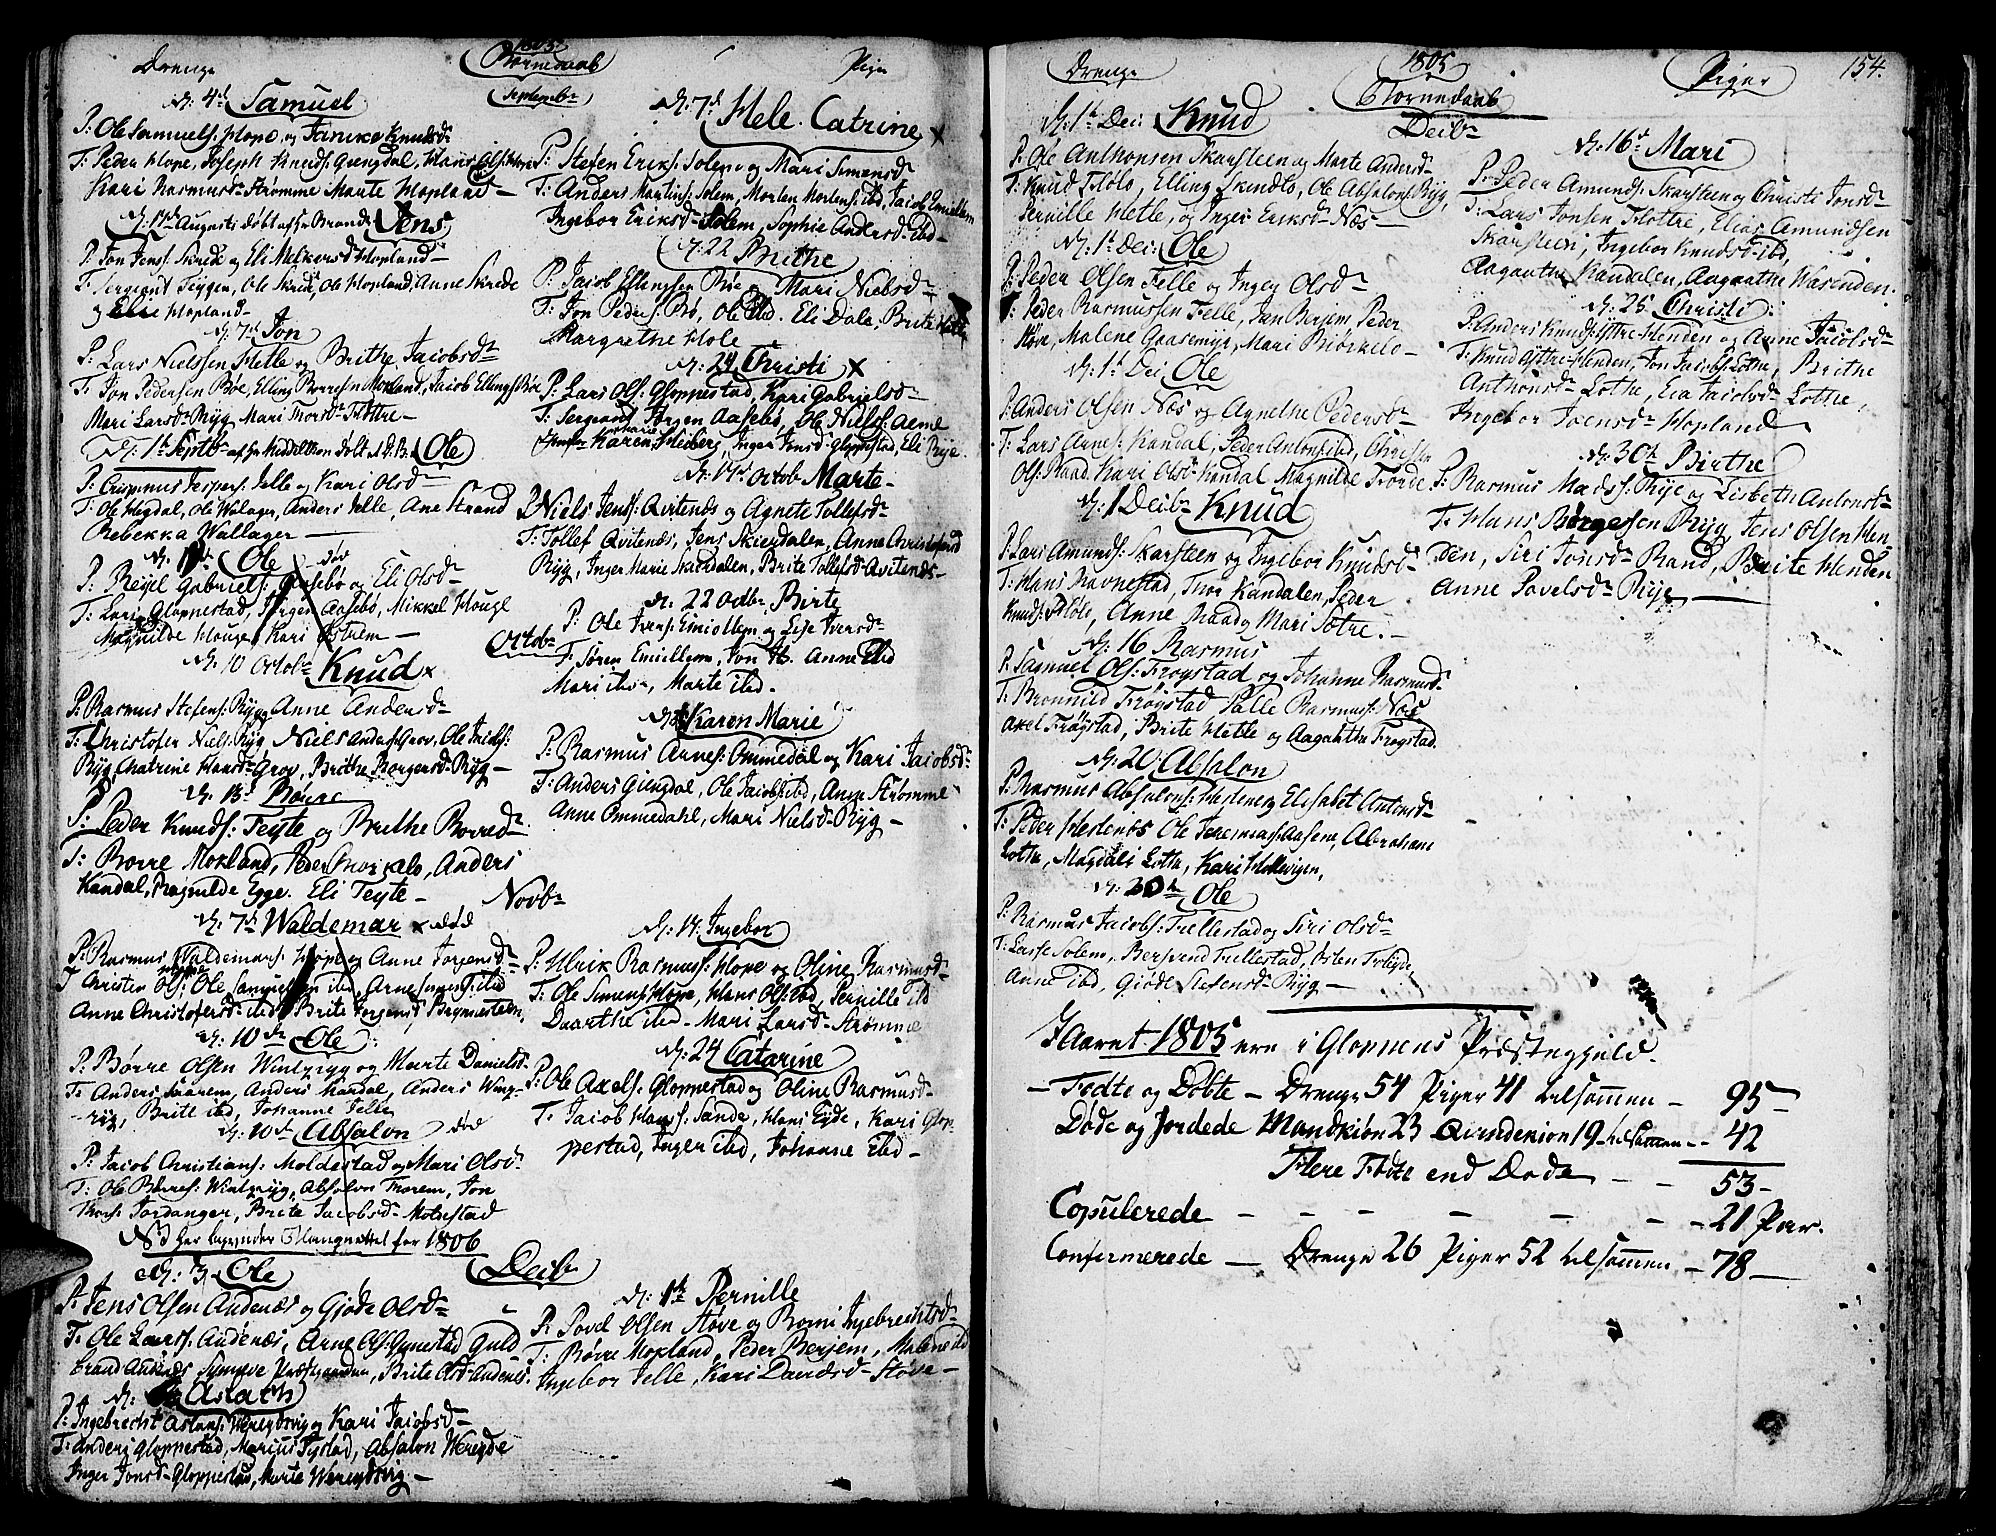 Drenge
1805.
Børnedaab
Septembr
Pige
N: 4d Samuel
P: Ole Samuels: Hope, og Jenike Knudsd
T: Peder Hope, Joseph Knuds: Giengdal, Hans Ols: Hope
Kari Rasmusd Strømme Marte Hopland
Augusti døbt af Hr Brandt Jens
P: Jon Jens: Skrede og Eli Melkersd Hopland
T: Sergeant Teygen, Ole Skrede, Ole Hopland, Anne Skrede
og Hopland
N: 7d Jon
P: Lars Nielssen Hetle og Brithe Jacobsd
T: Jon Pedersen Bøe, Elling Mokland, Jacob Ellings: Bøe
Mari Larsd Ryg Mari Thorsd Fløttre
N: 1te Septbr af Hr Middelthon døbt Ole
P: Jespers: Felle og Kari Olsd
T: Ole Hegdal, Ole Walager, Anders Felle, Ane Strand
Rebekka Wallager
Ole død
P: Reyel Gabriels: Aasebø og Eli Olsd
T: Lars Gloppestad, Jørgen Aasebø, Mikkel Houge
Magnilde Houge, Kari Østrem
N: 10 Octobr Knud x
P: Rasmus Stefens: Ryg Anne Andersd
T: Christofer Niels: Ryg, Niels Anders: Grov, Ole
Ryg Chatrine Hansd Grov, Brithe Borgersd Ryg
N: 13d Børre
P: Peder Knuds: Teyte og Brithe Borred
T: Borre Mokland, Peder, Anders
Kandal, Ragnilde Egge. Eli Teyte
Novbr
N: 7d Waldemar x død
P: Rasmus Waldemars: Hope og Anne Jorgensd
T Christen Ols: Ole Samuelssen ibd, Arne ibd
Anne Christofersd ibd Brite Jorgens Brynnesteen
N: 10de Ole
P: Børre Olsen Wintryg og Marte Danielsd
T: Anders Aarem, Anders Kandal, Anders Wing-
ryg, Brite ibd, Johanne Felle
N: 10d Absalon død
P: Jacob Christians: Moldestad og Mari Olsd
T: Ole Børres: Wintryg, Absalon Thorem, Jon
Thors: Jordanger, Brite Jacobsd Molnestad
NB Her begynder Mangtallet for 1806
N: 3 Ole
Decb
P: Jens Olsen Andenæs og Gjøde Olsd
T: Ole Larss: Andenæs, Arne Ols: Gynestad Guld
brand Andenæs Synneve Præstgaarden, Brite Olsd Andenes.
N: Aslath
P: Ingebrecht Aslaks: Wereydsvig og Kari Jacobsd
T: Anders Gloppestad, Marius Tystad, Absalon Wereyde
Inger Jonsd Gloppestad, Marte Wereydsvig
N: 7d Hele Catrine x
P: Stefen Eriks: Solem og Mari Simensd
T: Anders Martins: Solem, Morten Mortens: ibd, Jacob Emiellem
Ingebor Eriksd Solem, Sophie Andersd ibd
N: 22 Brithe
P: Jacob Ellingsen Bøe og Mari Nielsd
T: Jon Peders: Bø, Ole ibd. Eli Dale, Brite Hetle
Margrethe Hole
N: 24 Christi x
P: Lars Ols: Gloppestad, Kari Gabrielsd
T: Sergeant Jørgen Aasebø, Ole Niels: Aeme
Jomfr Karen Heiberg, Inger Jensd Gloppestad, Eli Rye
N: 14d Octob Marte
P Niels Jens: Qvitenes og Agnete Tollefsd
T: Tollef Qvitenæs, Jens Skierdalen, Anne Christofersd
Ryg, Inger Marie Skierdalen, Brite Tollefsd Qvitenes
N: 22 Octbr Birte
Octobr
P: Ole Ivers: Emiellem og Lisje Iversd
T: Søren Emiellem, Jon St. Anne ibd
Mari ibd, Marte ibd.
Karen Marie
P: Rasmus Annes: Ommedal og Kari Jacobsd
T: Anders Giengdal, Ole Jacobs: ibd, Anne Strømme
Anne Ommedahl, Mari Nielsd Ryg
N: 14 Ingebor
P: Ulrik Rasmus: Hope og Oline Rasmusd
T: Ole Simens: Hope, Hans Ols: ibd, Pernille ibd
Daarthe ibd Mari Larsd Strømme
N: 24 Catarine
P: Ole Axels: Gloppestad og Oline Rasmusd
T: Jacob Hans: Sande, Hans Eyde, Kari Glop
pestad, Inger ibd, Johanne ibd
N: 1te Pernille
P: Povel Olsen Støve og Romi Ingebrechtsd
T: Børre Mokland, Peder Berjem, Malene ibd
Ingebor Felle, Kari Davidsd Støve
Drenge
1805
Børnedaab
Decbr
Piger
154.
N: 1te Dec: Knud
P: Ole Anthonsen Skarsteen og Marte Andersd
T: Knud Fløle, Elling Skindlo, Ole Absalons: Ryg,
Pernille Hetle, og Inger Eriksd Næs
N: 1te Dec: Ole
P: Peder Olsen Felle og Inger Olsd
T: Peder Rasmussen Felle, Jan Berjem, Peder
Høve, Malene Gaasemyr, Mari Biørkelo
N: 1te Dec: Ole
P: Anders Olsen Næs og Agnethe Pedersd
T: Lars Annes: Kandal, Peder Antons: ibd, Christen
Ols: Raad Kari Olsd Kandal Magnilde Førde
N: 1 Decbr Knud
P: Lars Amunds: Skarsteen og Ingebor Knudsd
T: Hans Ravnestad, Thor Kandalen, Peder
Knuds: Fløle, Anne Raad og Mari Sætre.
N: 16 Rasmus
P: Samuel Ols: Frøystad og Johanne Rasmusd
T: Bronnild Frøystad Palle Rasmus: Næs
Axel Frøystad, Brite Hetle og Aagaathe Frøystad.
N: 20. Absalon
P: Rasmus Absalons: Hestenes Elisabet Antonsd
T: Peder Hestenes Ole Jeremias: Aasene, Abraham
Lothe, Magdeli Lothe, Kari Hollevigen,
N: 26de Ole
P: Rasmus Jacobs: Tullestad og Siri Olsd
T: Lasse Solem, Bertend Tullestad, Østen Treyde
Anne ibd, Gjøde Stefensd Ryg
N: 16d Mari
P: Peder Amunds: Skarsteen og Christi Jonsd
T: Lars Jonsen Flottre, Elias Amundsen
Skarsteen, Ingebor Knudsd ibd,
Aagaathe Kandalen, Aagaathe Warenden.
N: 25 Christi
P: Anders Knuds: Yttre Henden og Anne Jacobsd
T: Knud Yttre Henden, Jon Jacobs: Lothe, Brithe
Anthonsd Lothe, Eva Jacobsd Lothe,
Ingebor Joensd Hopland
N: 30te Birthe
P: Rasmus Madss: Rye og Lisbeth Antonsd
T: Hans Børgesen Ryg Jens Olsen Hen
den, Siri Jonsd Rand, Brite Henden
Anne Povelsd Rye
I Aaret 1805 ere i Gloppens Præstegjeld.
Fødte og Døbte – Drenge 54 Piger 41 tilsammen – 95
Døde og Jordede Mandkiøn 23 Qvindekiøn 19 tilsammen – 42
Flere Fødte end Døde – – 53
Copulerede – – – – – – 21 Par.
Confirmerede – Drenge 26 Piger 52 tilsammen – 78